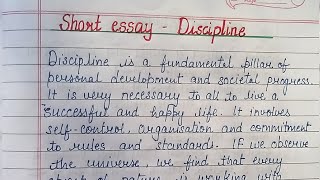 Short essay - Discipline
Discipline is a fundamental pillar of
personal development and societal progress.
It is very necessary to all to live a
successful and happy life. It involves
self-control, organisation and commitment
to rules and standards. If we observe
the universe, we find that every
of nature is working with